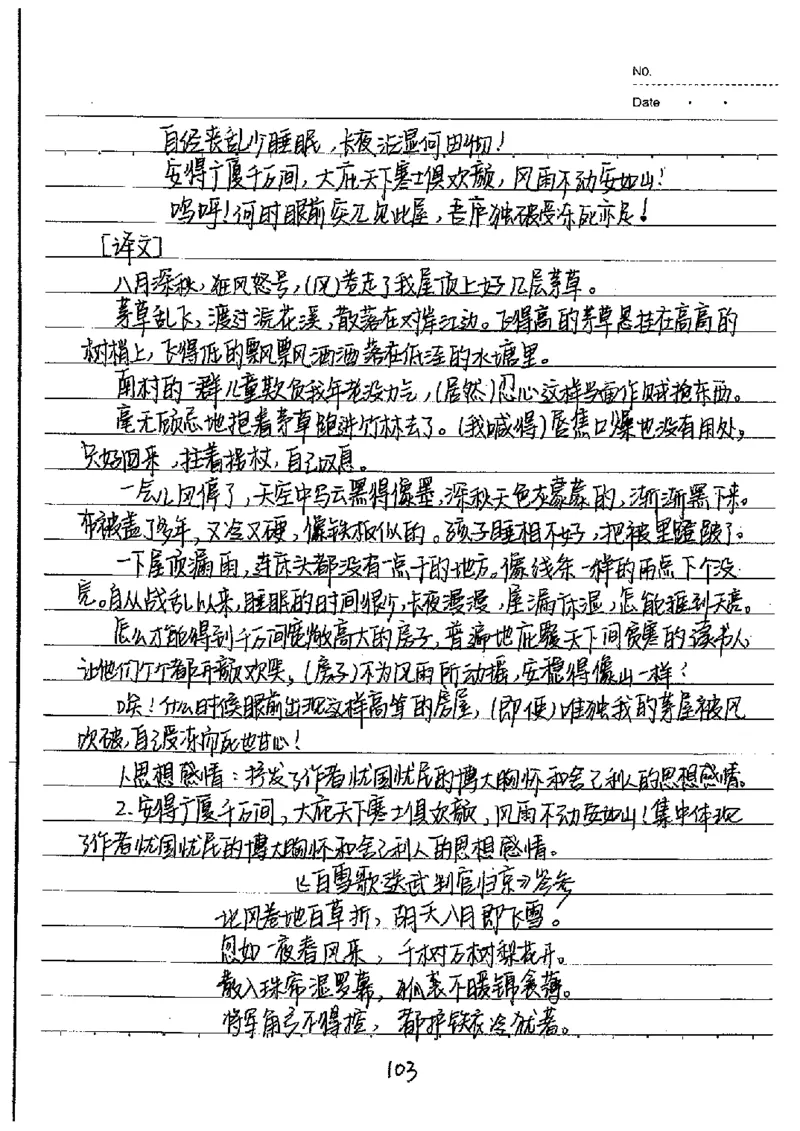 No.
Date
自经丧乱少睡眠，长夜沾湿何由彻！
安得广厦千万间，大庇天下寒士俱欢颜，风雨不动安如山！
呜呼！何时眼前突兀见此屋，吾庐独破受冻死亦足！
[译文]
八月深秋，狂风怒号，(风)卷走了我屋顶上好几层茅草。
茅草乱飞，渡过浣花溪，散落在对岸江边。飞得高的茅草悬挂在高高的
树梢上，飞得低的飘飘洒洒落在低洼的水塘里。
南村的一群儿童欺负我年老没力气，(居然)忍心这样当面作贼抢东西。
毫无顾忌地抱着茅草跑进竹林去了。(我喊得)唇焦口燥也没有用处，
只好回来，拄着拐杖，自己叹息。
一会儿风停了，天空中乌云黑得像墨，深秋天色灰蒙蒙的，渐渐黑下来。
布被盖了多年，又冷又硬，像铁板似的。孩子睡相不好，把被里蹬破了。
一下屋顶漏雨，连床头都没有一点干的地方。像线条一样的雨点下个没
完。自从战乱以来，睡眠的时间很少，长夜漫漫，屋漏床湿，怎能挨到天亮。
怎么才能得到千万间宽敞高大的房子，普遍地庇覆天下间贫寒的读书人，
让他们个个都开颜欢笑，(房子)不为风雨所动摇，安稳得像山一样？
唉！什么时候眼前出现这样高耸的房屋，(即使)唯独我的茅屋被风
吹破，自己受冻而死也甘心！
1.思想感情：抒发了作者忧国忧民的博大胸怀和舍己利人的思想感情。
2.安得广厦千万间，大庇天下寒士俱欢颜，风雨不动安如山！集中体现
了作者忧国忧民的博大胸怀和舍己利人的思想感情。
《白雪歌送武判官归京》岑参
北风卷地百草折，胡天八月即飞雪。
忽如一夜春风来，千树万树梨花开。
散入珠帘湿罗幕，狐裘不暖锦衾薄。
将军角弓不得控，都护铁衣冷犹着。
103